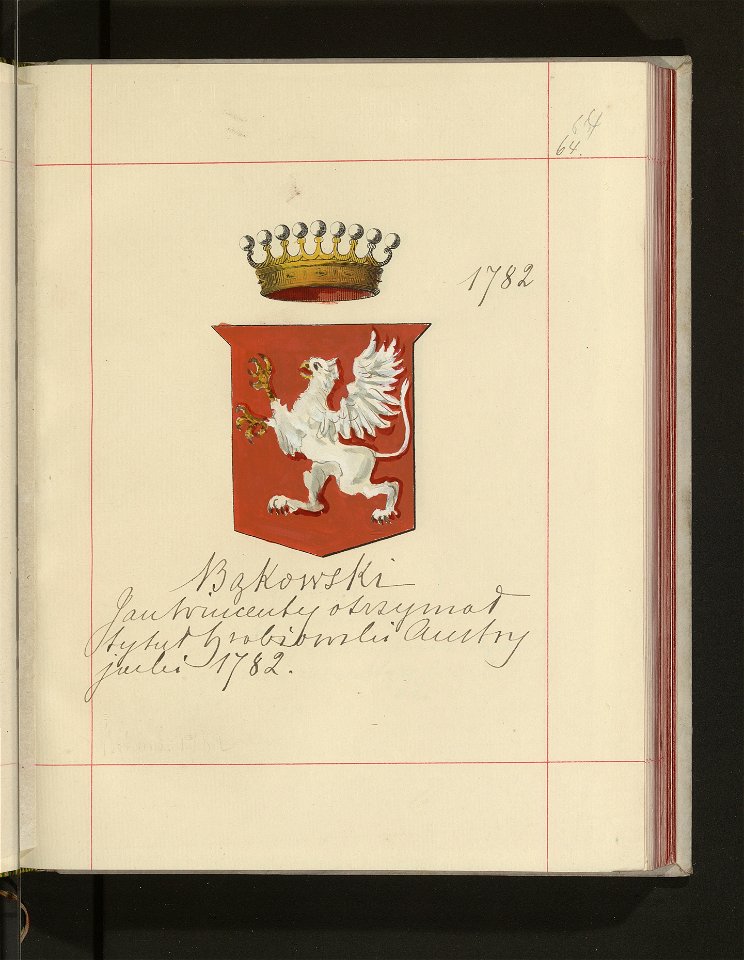 64
64.
1782
Bąkowski
Jan Wincenty otrzymał
tytuł hrabiowski Austry
jacki 1782.